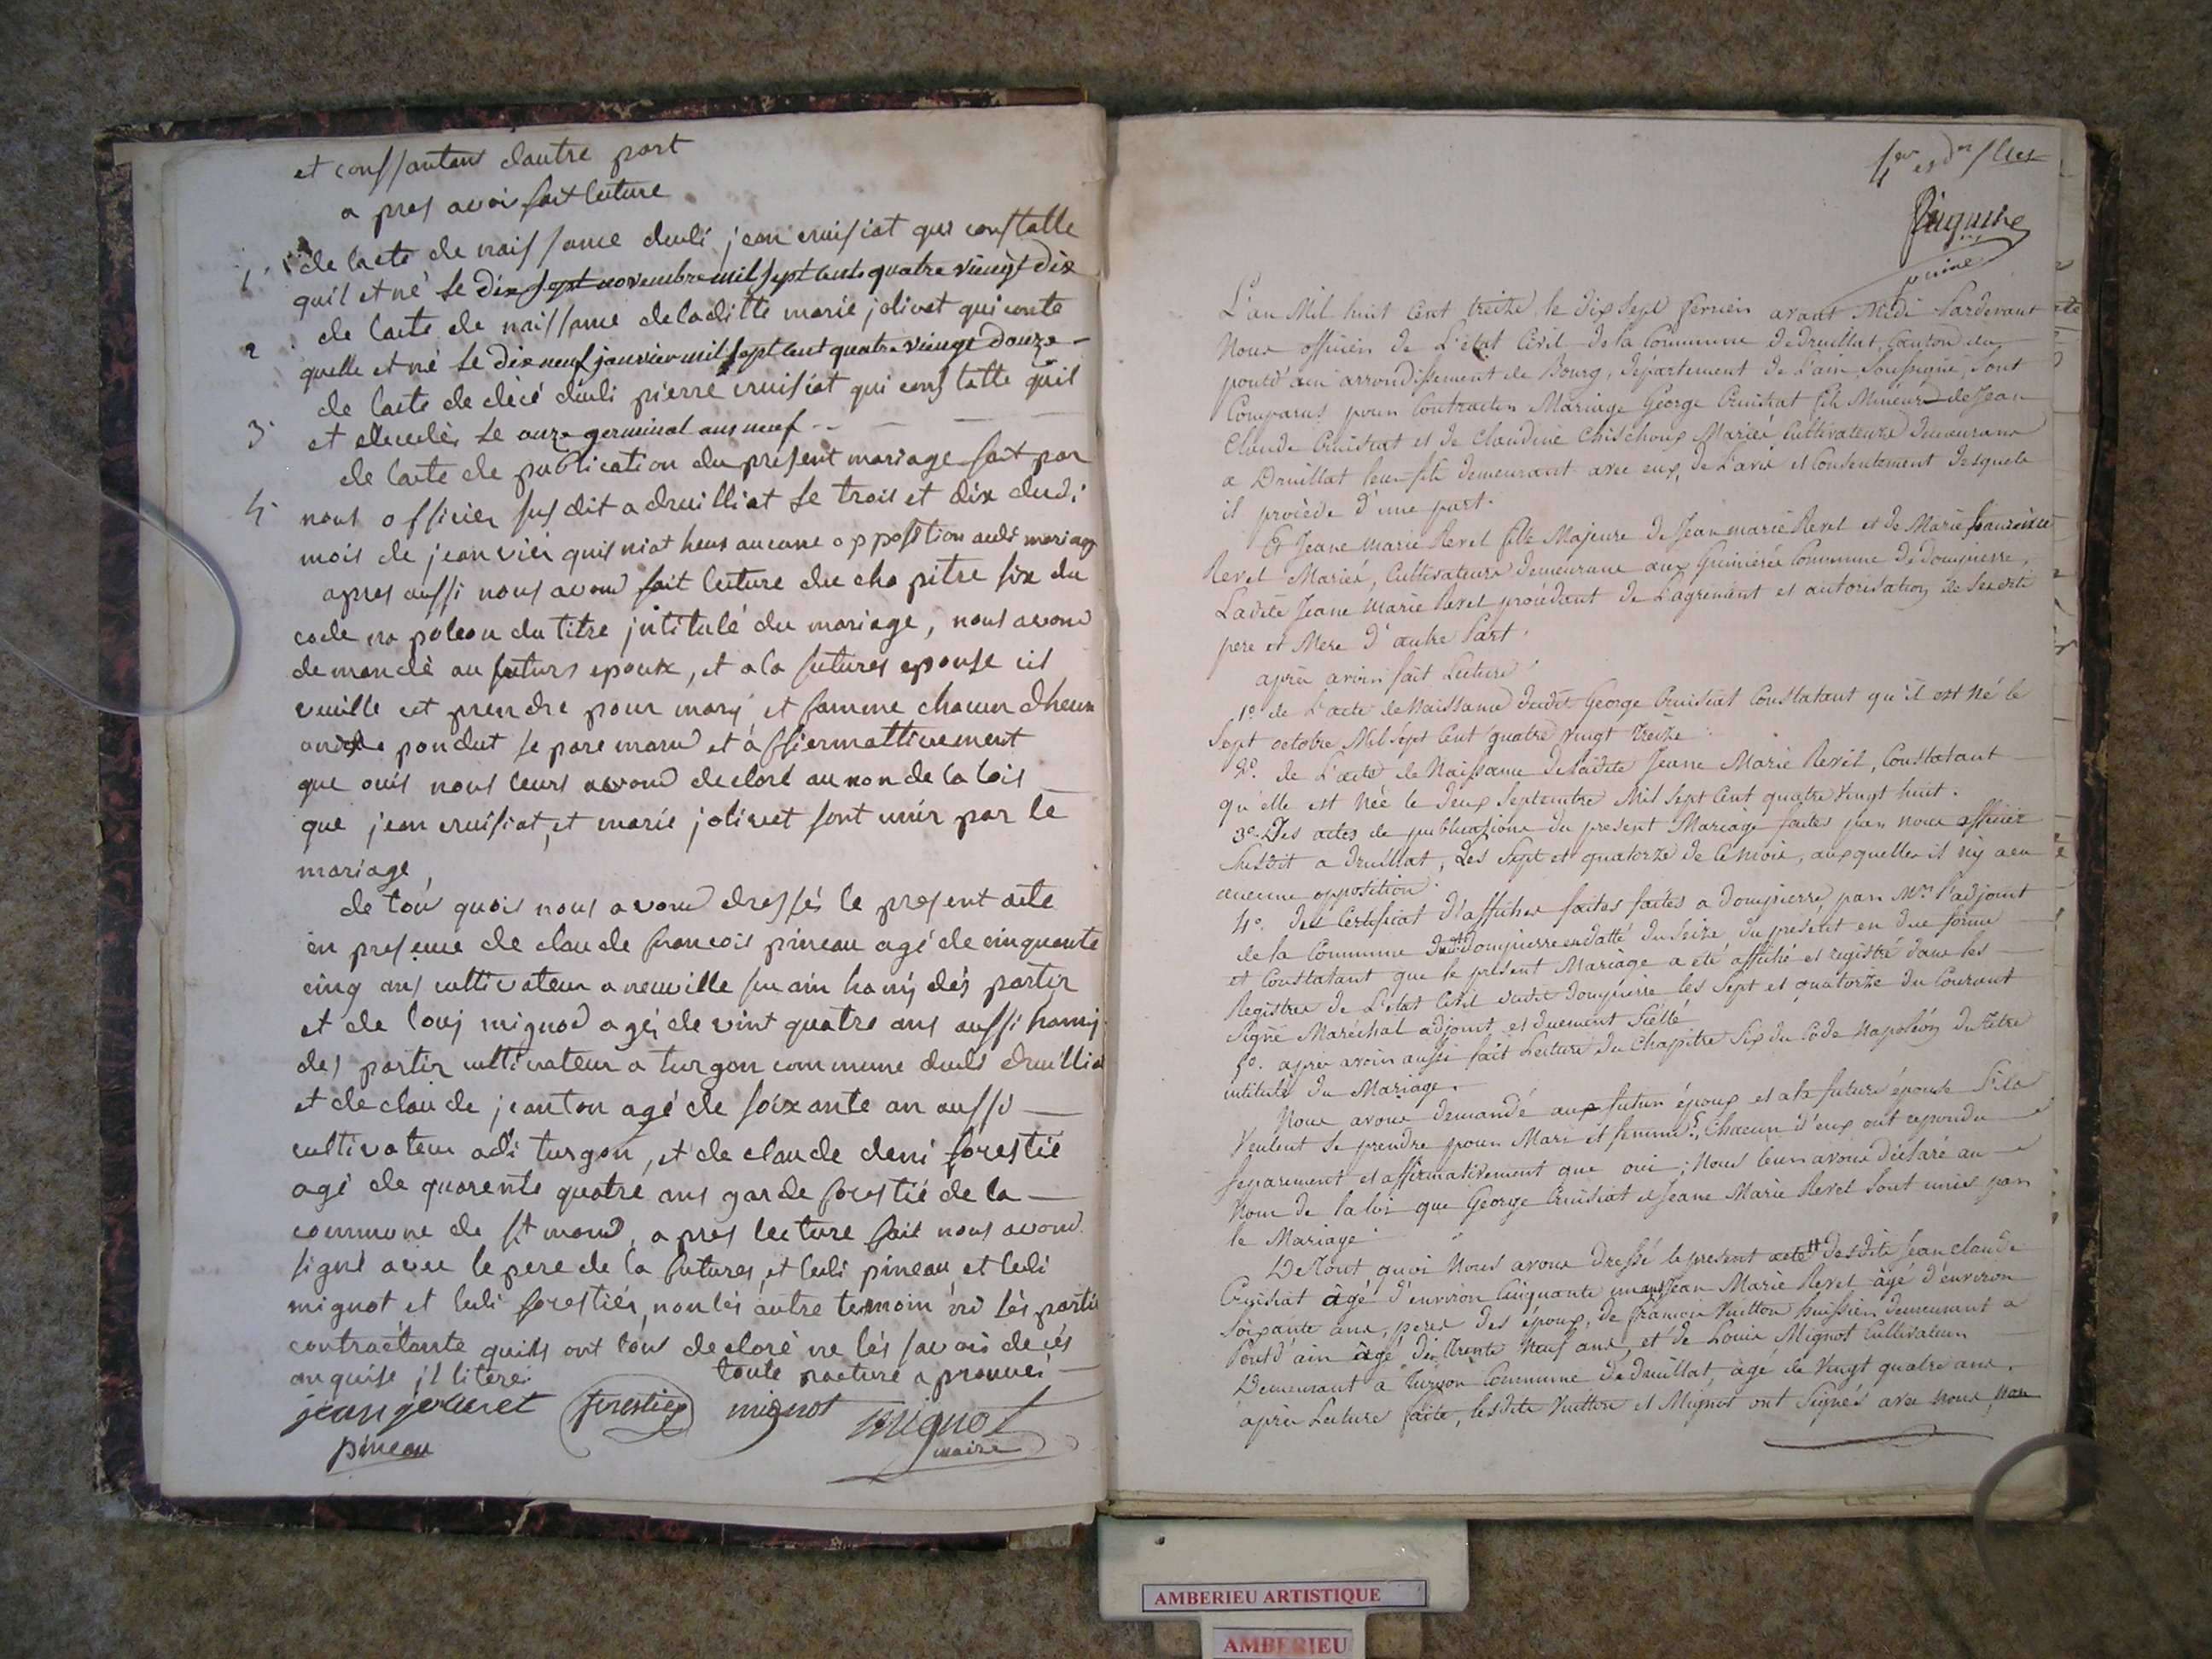 et conssantant dautre part
a pres avoir fait luture
1. de lacte de naissance dudi jean cruisiat qui constatte
quil et né le dix sept novembre mil sept cents quatre vieingt dix
2. de lacte de naissance deladitte marie jolivet qui conte
quelle et né le dix neuf janvier mil sept cent quatre vieingt douze
3. de lacte de décé dudi pierre cruisiat qui constatte quil
et decedés le onze germinal ans neuf
de lacte de publication du present mariage fait par
4. nous officier sus dit a druilliat le trois et dix dudi
mois de jeanvier quis niat heus aucune oppossition audi mariage
apres aussi nous avons fait luture du cha pitre six du
code na poleon du titre jntitulé du mariage, nous avons
de mandé au futurs epoux, et a la futures epouse sil
veuille set prendre pour mary et famme chacun dheux
ondre pondut se pare mant et affiermattivement
que ouis nous leurs avons declaré au non de la lois
que jean cruisiat, et marie jolivet sont unir par le
mariage,
de tou quois nous avons dressés le present acte
en presence de claude francois pineau agé de cinquante
cinq ans cultivateur a neuville sur ain hamy dés partir
et de louy mignod agé de vint quatre ans aussi hamy
des partir cultivateur a turgon commune dudi druillia
et de claude jeanton agé de soixante an aussi
cultivateur adi turgon, et de claude deni forestié
agé de quarente quatre ans garde forestié de la
commune de st mard, apres lecture fait nous avons
signé avec le pere de la futures et ledi pineau et ledi
mignot et ledi forestiér, non lés autre temoin ni lés partie
contractante quils ont tous declaré ne lés savois de cés
anquise jl litere. toute racture aprouvé
jean joliveret forestier mignot mignot
pineau maire
4er et der f
L'an Mil huit Cent treize, le dix Sept fevrier avant Midi Pardevant
Nous officier de L'etat Civil de la Commune de Druillat, Canton du
pontd'ain arrondissement de Bourg, département de L'ain, Soussigné, Sont
Comparus pour Contracter Mariage George Cruisiat fils Mineur de Jean
Claude Cruisiat et de Claudine Chischoux Mariés Cultivateurs demeurans
a Druillat leur fils demeurant avec eux, de L'avis et Consentement desquels
il procède d'une part.
Et Jeane Marie Revel fille Majeure de Jean marie Revel et de Marie francoise
Revel Mariés, Cultivateurs demeurans aux Commune de Dompierre,
Ladite Jeane Marie Revel procédant de L'agrément et autorisation de Sesdits
pere et Mere d'autre Part.
après avoir fait Lecture
1º. de L'acte de Naissance dudit George Cruisiat Constatant qu'il est Né le
Sept octobre Mil Sept Cent quatre Vingt Treize.
2º. de L'acte de Naissance deladite Jeane Marie Revel, Constatant
qu'elle est Née le deux Septembre Mil Sept Cent quatre Vingt huit.
3º. Des actes de publications du present Mariage faites par nous officier
Susdit a Druillat, Les Sept et quatorze de Ce Mois, auxquelles il n'y a eu
aucune opposition.
4º. du Certificat d'affiches faites faites a Dompierre, par Mr. l'adjoint
de la Commune dudt Dompierre en datte du Seize du présent en due forme
et Constatant que le présent Mariage a été affiché et registré dans les
Registres de L'etat Civil dudit Dompierre les Sept et quatorze du Courant
Signé Maréchal adjoint, et duement Scéllé
5º. après avoir aussi fait Lecture du Chapitre Six du Code Napoléon du Titre
intitulé du Mariage.
Nous avons demandé aux futur époux et a la future épouse S'ils
Veulent Se prendre pour Mari et femme?, Chacun d'eux ont repondu
Separement et affirmativement que oui; Nous leur avons déclaré au
Nom de la loi que George Cruisiat et Jeane Marie Revel Sont unis par
le Mariage
De Tout quoi Nous avons Dressé le present acte desdits Jean Claude
Cruisiat âgé d'environ Cinquante un ans Jean Marie Revel âgé d'environ
Soixante ans, peres des époux, de francois Vuitton huissier demeurant a
Pontd'ain âgé de Trente Neuf ans, et de Louis Mignot Cultivateur
Demeurant a Turgon Commune de Druillat, âgé de Vingt quatre ans.
après Lecture faite, lesdits Vuitton et Mignot ont Signés avec Nous, non
AMBERIEU ARTISTIQUE
AMBERIEU